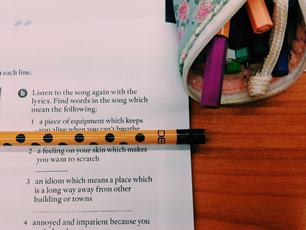 n each line.
b Listen to the song again with the
lyrics. Find words in the song which
mean the following:
1 a piece of equipment which keeps
you alive when you can't breathe
2 a feeling on your skin which makes
you want to scratch
3 an idiom which means a place which
is a long way away from other
building or towns
4 annoyed and impatient because you